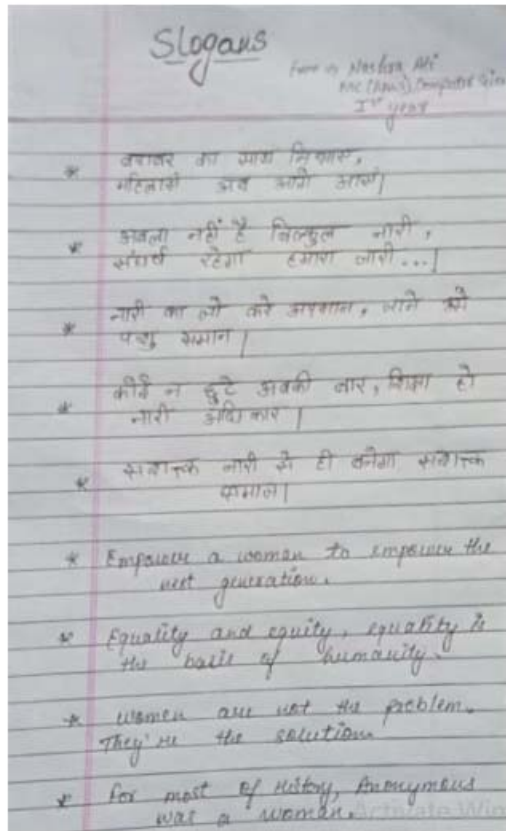 Slogans
Nastra Ali
Ist year
* बराबर का साथ निभाएं,
महिलाएं अब आगे आएं।
* अबला नहीं है बिल्कुल नारी,
संघर्ष रहेगा हमारा जारी...।
* नारी का जो करे अपमान, जाने
पशु समान।
* कोई न छुटे अबकी बार, शिक्षा हो
नारी अधिकार।
* सशक्त नारी से ही बनेगा सशक्त
समाज।
* Empower a woman to empower the
next generation.
* Equality and equity, equality is
the basis of humanity.
* women are not the problem.
They're the solution.
* For most of History, Anonymous
was a woman.